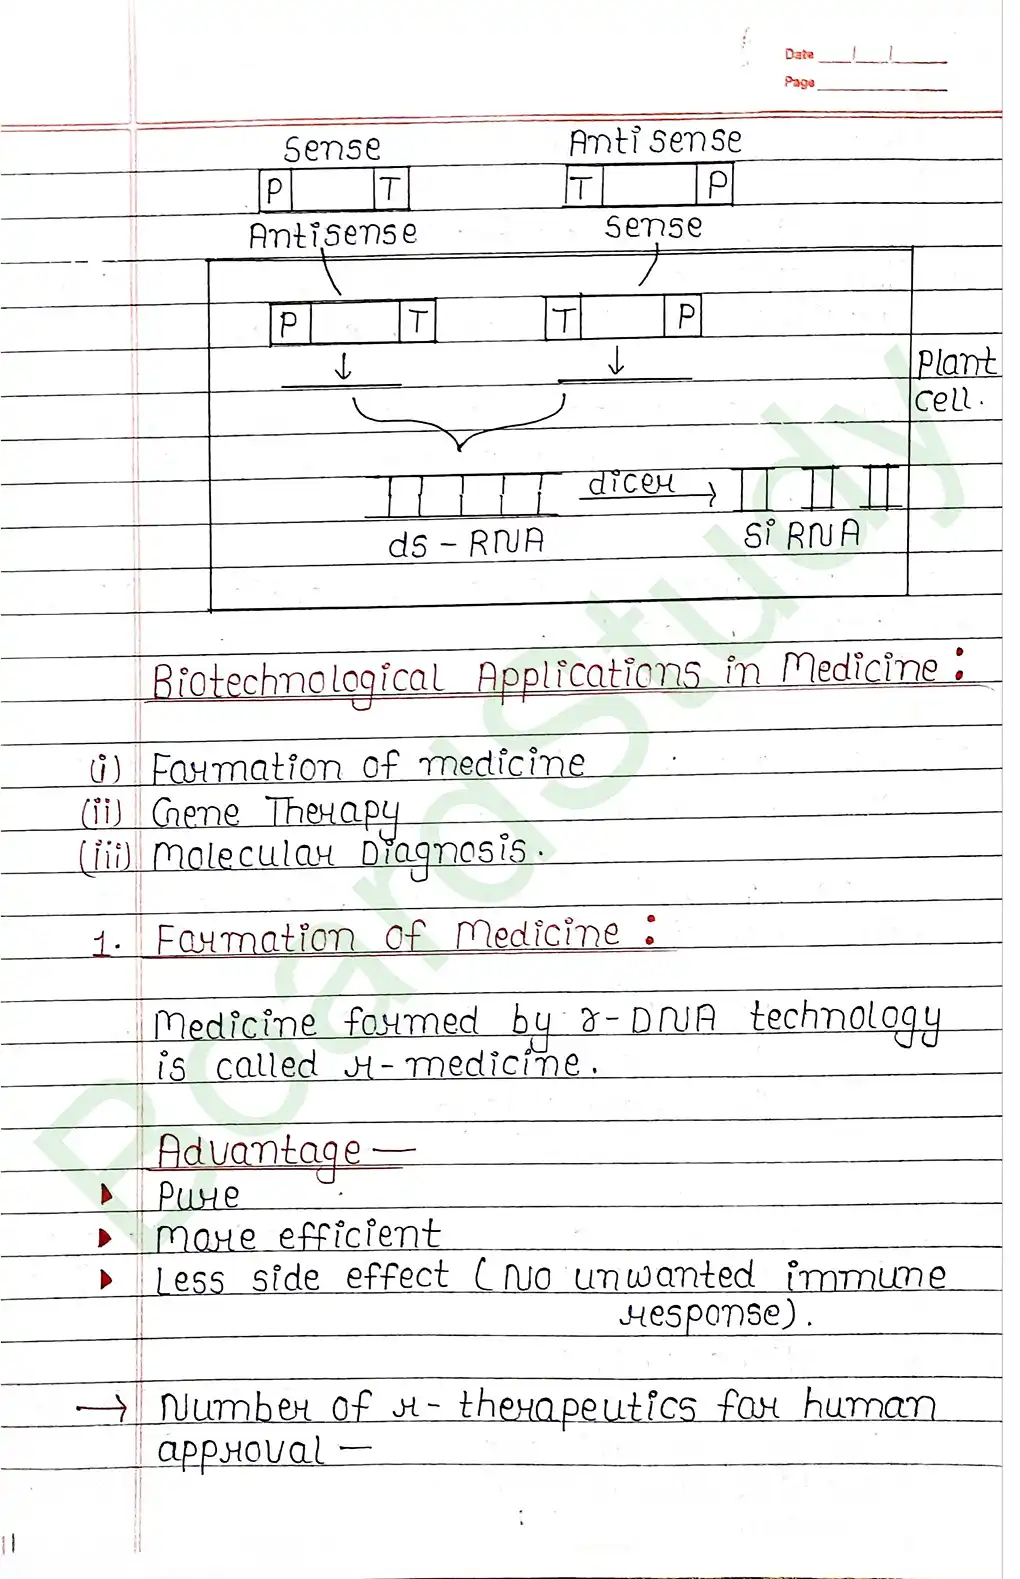 Date
Page
Sense Antisense
P T T P
Antisense Sense
P T T P
Plant
cell.
dicer
ds - RNA Si RNA
Biotechnological Applications in Medicine :
(i) Formation of medicine
(ii) Gene Therapy
(iii) Molecular Diagnosis.
1. Formation of Medicine :
Medicine formed by r-DNA technology
is called r-medicine.
Advantage —
Pure
More efficient
Less side effect (No unwanted immune
response).
→ Number of r-therapeutics for human
approval —
BoardStudy